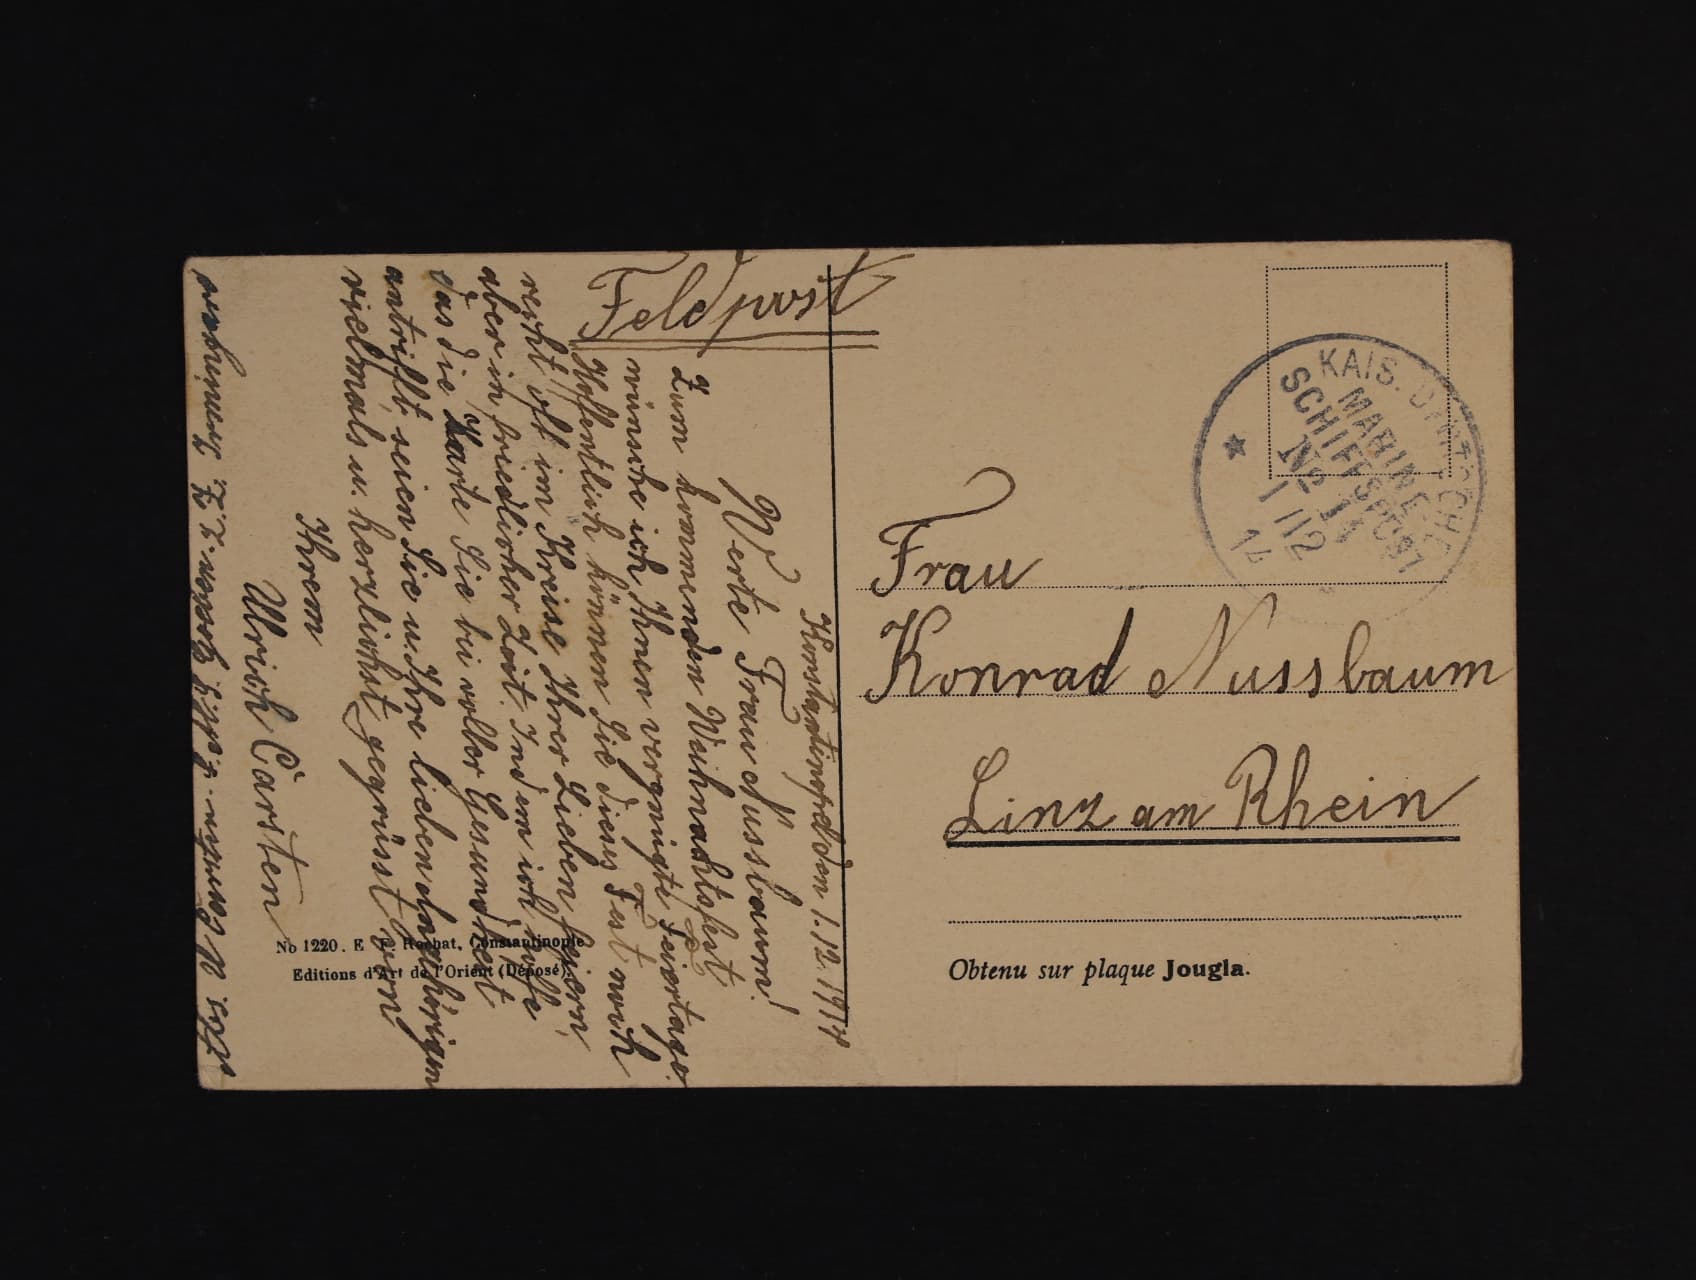 Feldpost
Konstantinopel den 1.12.1914
Werte Frau Nussbaum!
Zum kommenden Weihnachtsfest
wünsche ich Ihnen vergnügte Feiertage.
Hoffentlich können Sie dieses Fest noch
recht oft im Kreise Ihrer Lieben feiern,
aber in friedlicher Zeit. Indem ich hoffe
das die Karte Sie bei voller Gesundheit
antrifft, seien Sie u. Ihre lieben Angehörigen
vielmals u. herzlichst gegrüsst von
Ihrem
Ulrich Carsten
No 1220. E. F. Rochat, Constantinople
Editions d'Art de l'Orient (Déposé).
KAIS. DEUTSCHE
MARINE-
SCHIFFSPOST
No 11
1 12
14
Frau
Konrad Nussbaum
Linz am Rhein
Obtenu sur plaque Jougla.